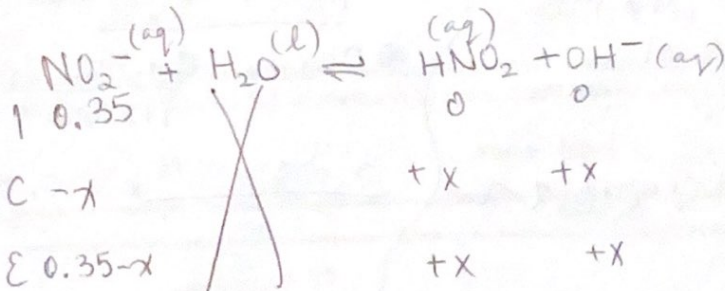 NO₂⁻(aq) + H₂O(l) ⇌ HNO₂(aq) + OH⁻(aq)
I 0.35 0 0
C -x +x +x
E 0.35-x +x +x